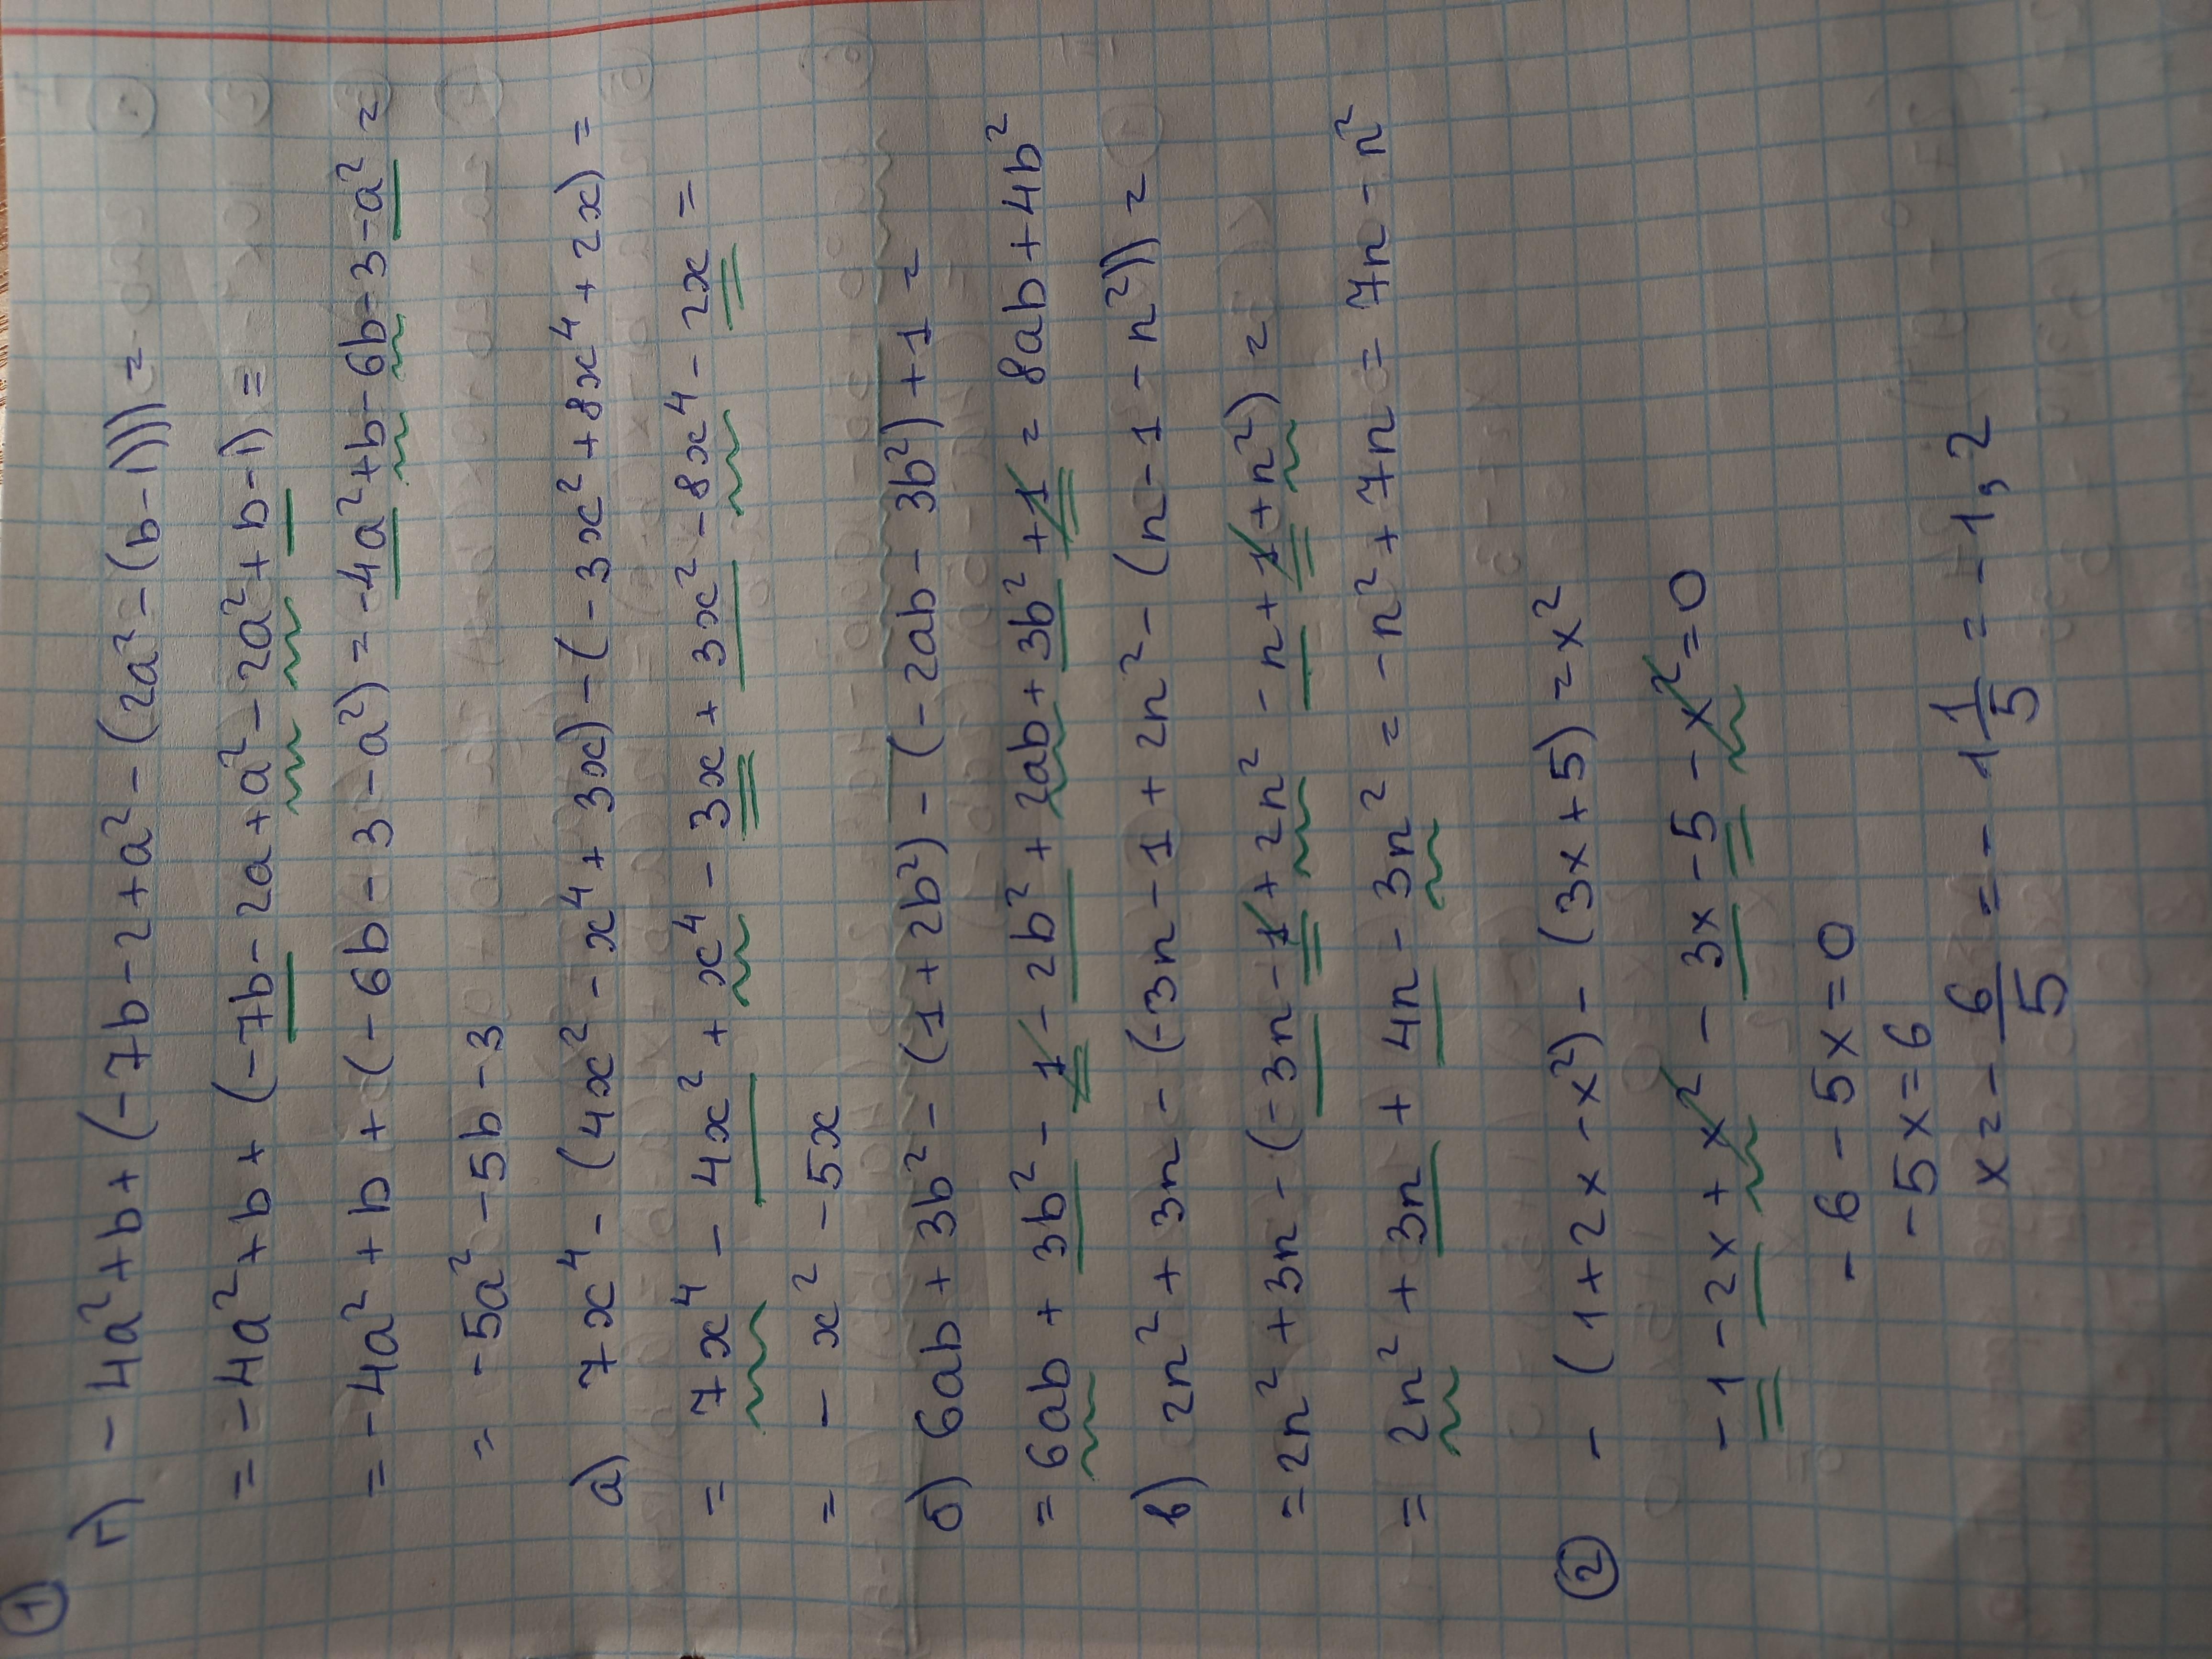 ①
г) -4a²+b+(-7b-2+a²-(2a²-(b-1)))=
=-4a²+b+(-7b-2a+a²-2a²+b-1)=
=-4a²+b+(-6b-3-a²)=-4a²+b-6b-3-a²=
=-5a²-5b-3
а) 7x⁴-(4x²-x⁴+3x)-(-3x²+8x⁴+2x)=
=7x⁴-4x²+x⁴-3x+3x²-8x⁴-2x=
=-x²-5x
б) 6ab+3b²-(1+2b²)-(-2ab-3b²)+1=
=6ab+3b²-1-2b²+2ab+3b²+1=8ab+4b²
в) 2n²+3n-(-3n-1+2n²-(n-1-n²))=
=2n²+3n-(-3n-1+2n²-n+1+n²)=
=2n²+3n+4n-3n²=-n²+7n=7n-n²
② -(1+2x-x²)-(3x+5)=x²
-1-2x+x²-3x-5-x²=0
-6-5x=0
-5x=6
x=-6/5=-1 1/5=-1,2